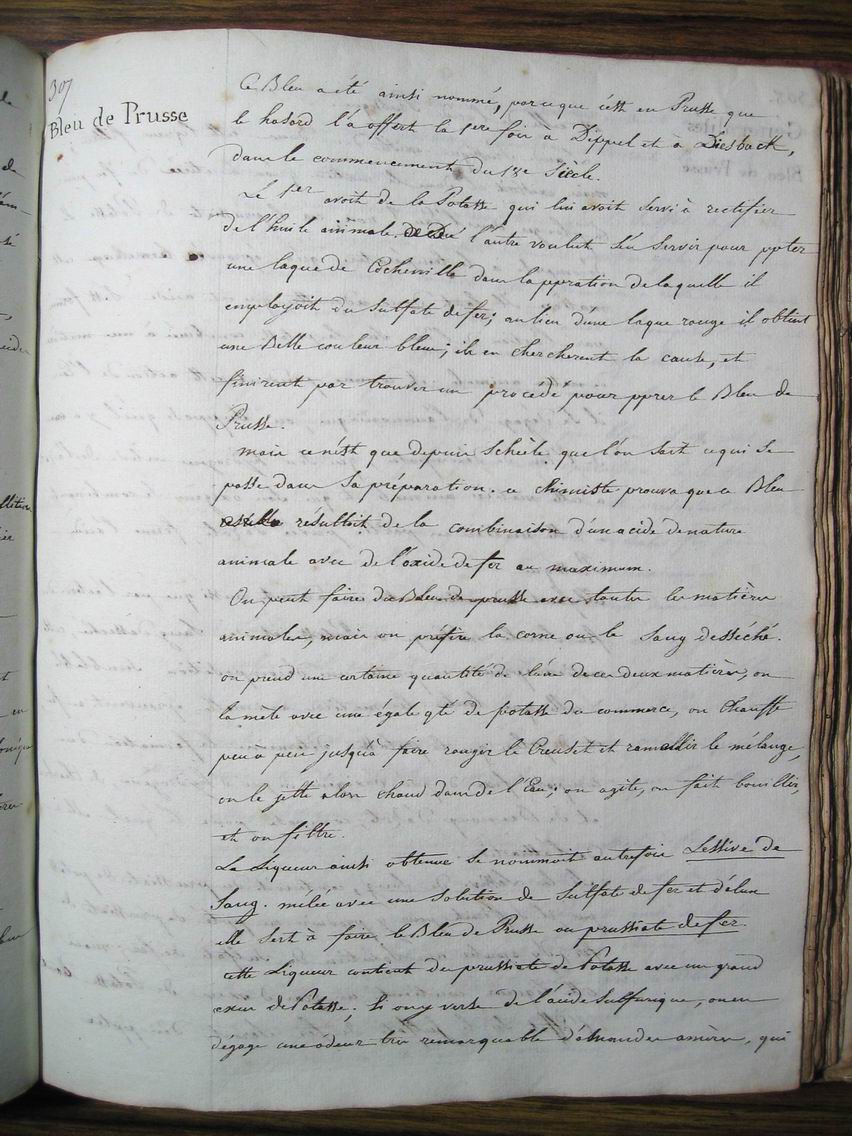 307
Bleu de Prusse
Ce Bleu a été ainsi nommé, parceque c'est en Prusse que
le hasard l'a offert la 1ere fois à Dippel et à Diesback,
dans le commencement du 18e Siècle.
Le 1er avoit de la Potasse qui lui avoit servi à rectifier
de l'huile animale. l'autre voulut s'en servir pour ppter
une laque de Cochenille dans la ppration de laquelle il
employoit du Sulfate de fer; au lieu d'une laque rouge il obtint
une Belle couleur bleue; ils en cherchèrent la cause, et
finirent par trouver un procédé pour pprer le Bleu de
Prusse.
mais ce n'est que depuis Schéele que l'on sait ce qui se
passe dans sa préparation. ce chimiste prouva que ce Bleu
résultoit de la combinaison d'un acide de nature
animale avec de l'oxide de fer au maximum.
On peut faire du Bleu de prusse avec toutes les matières
animales, mais on préfère la corne ou le Sang desséché.
on prend une certaine quantité de l'une de ces deux matières, on
la mêle avec une égale qté de potasse du commerce, on chauffe
peu à peu jusqu'à faire rougir le Creuset et ramollir le mélange,
on le jette alors chaud dans de l'Eau; on agite, on fait bouillir,
et on filtre.
La Liqueur ainsi obtenue se nommoit autrefois Lessive de
Sang. mêlée avec une solution de Sulfate de fer et d'alun
elle sert à faire le Bleu de Prusse ou prussiate de fer.
cette Liqueur contient du prussiate de Potasse avec un grand
excès de Potasse. Si on y verse de l'acide Sulfurique, on en
dégage une odeur très remarquable d'amandes amères, qui